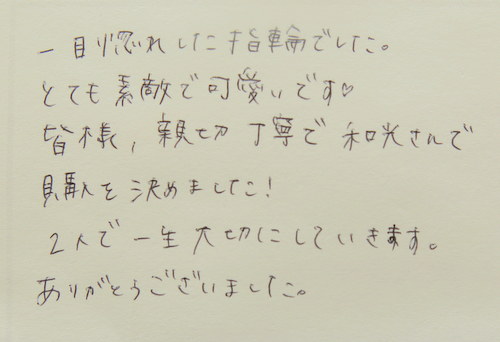 一目惚れした指輪でした。
とても素敵で可愛いです♡
皆様、親切丁寧で和光さんで
購入を決めました!
2人で一生大切にしていきます。
ありがとうございました。